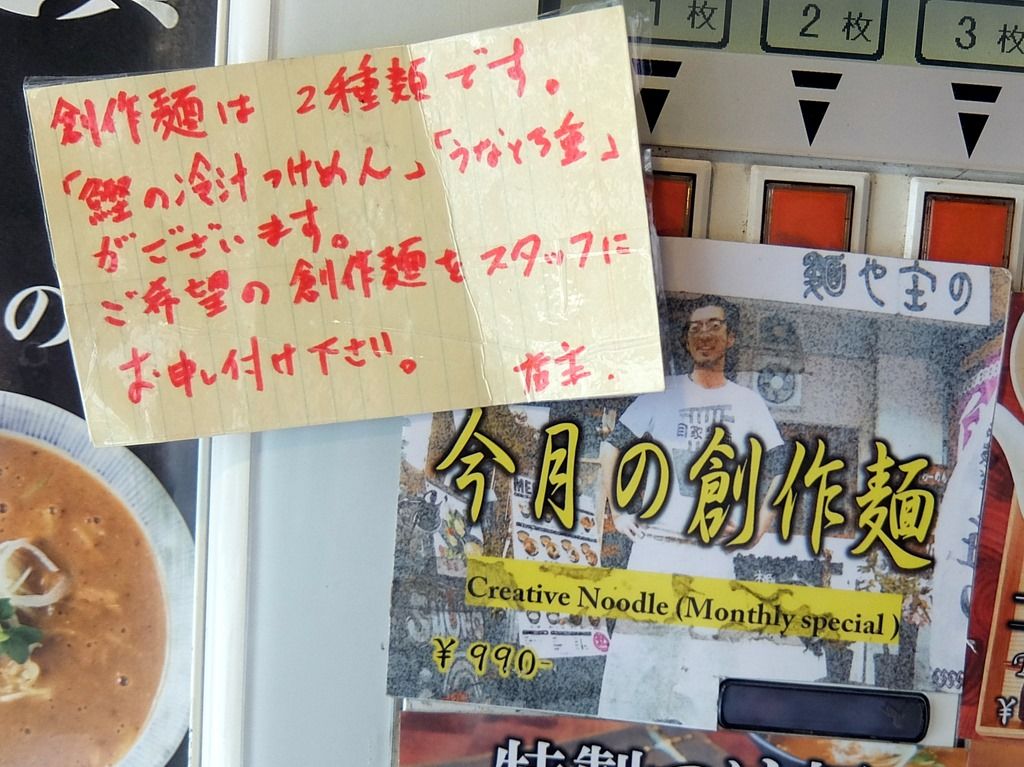 創作麺は 2種類です。
「鰹の冷汁つけめん」「うなとろ重」
がございます。
ご希望の創作麺をスタッフに
お申し付け下さい。 店主.
1枚 2枚 3枚
の
麺や宝の
今月の創作麺
Creative Noodle (Monthly special )
¥990-
特製つけ